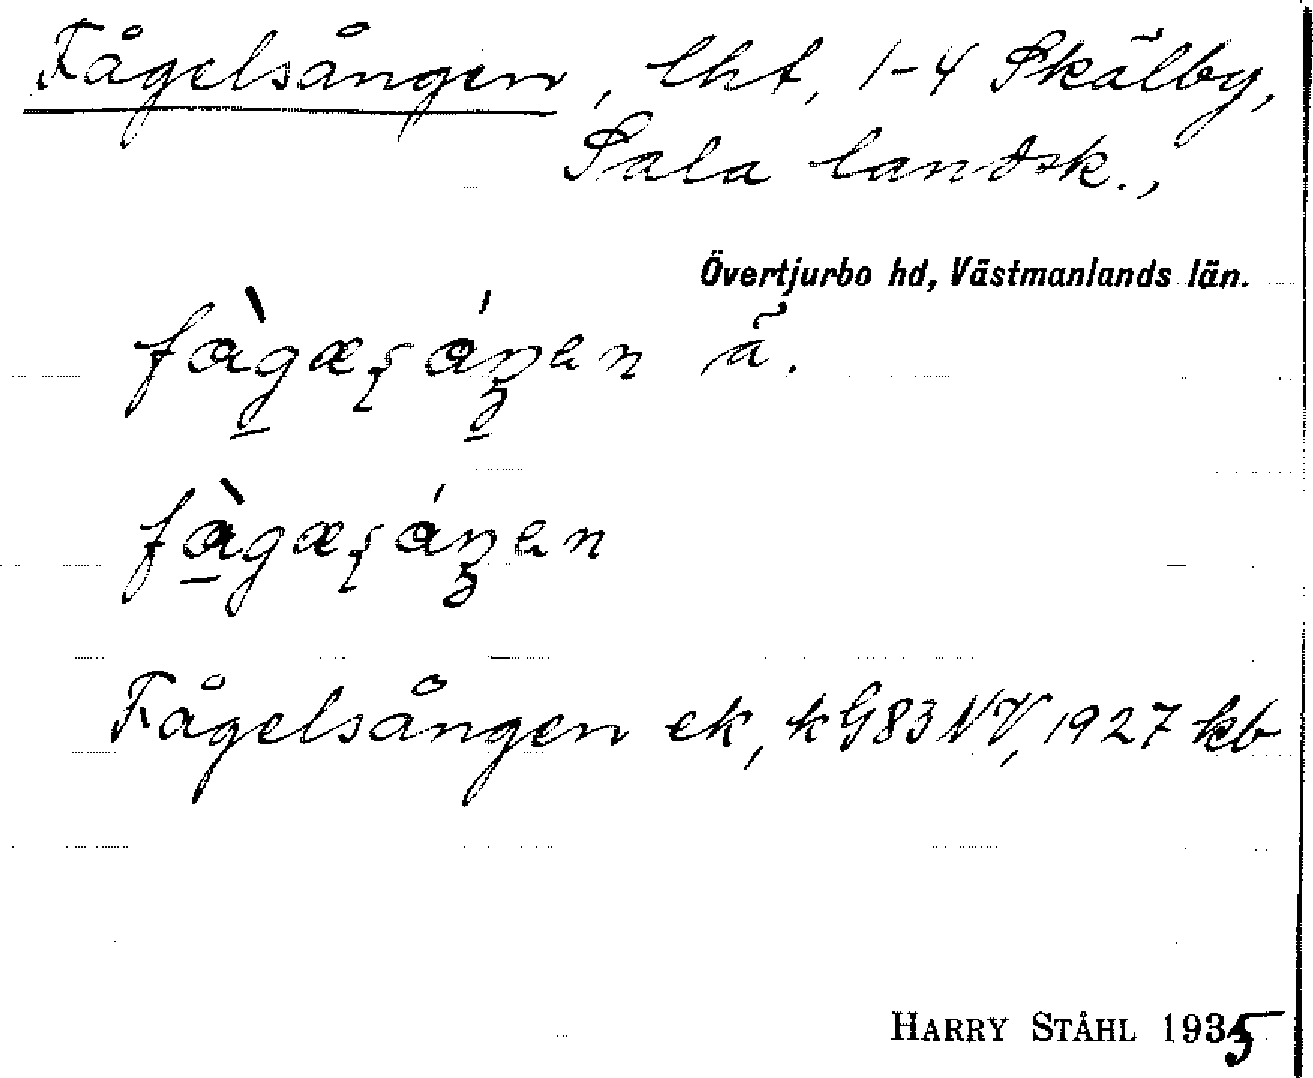 Fågelsången, lht, 1-4 Skälby,
Sala landsk.,
Övertjurbo hd, Västmanlands län.
ä.
Fågelsången ek, kG83NV, 1927 kb
HARRY STÅHL 1935